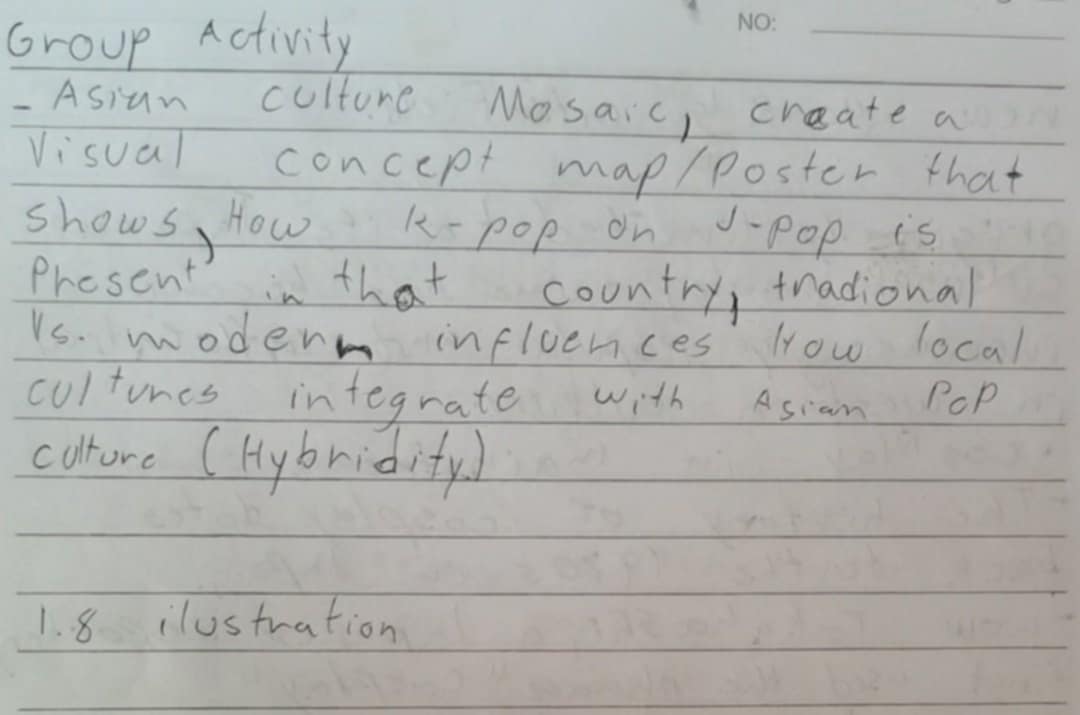 NO:
Group Activity
- Asian culture Mosaic, create a
Visual concept map/Poster that
shows, How k-pop or J-pop is
Present in that country, tradional
Vs. modern influences How local
cultures integrate with Asian PoP
culture (Hybridity)
1.8 ilustration